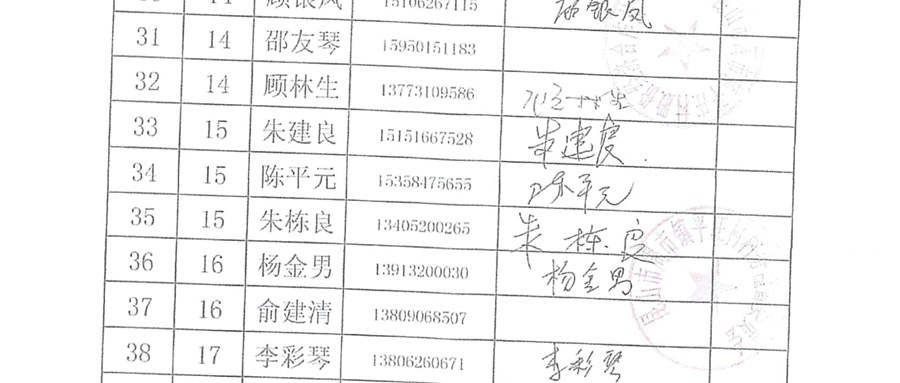 14 顾银凤 15106267115 顾银凤
31 14 邵友琴 15950151183
32 14 顾林生 13773109586
33 15 朱建良 15151667528 朱建良
34 15 陈平元 15358475655 陈平元
35 15 朱栋良 13405200265 朱栋良
36 16 杨金男 13913200030 杨金男
37 16 俞建清 13809068507
38 17 李彩琴 13806260671 李彩琴